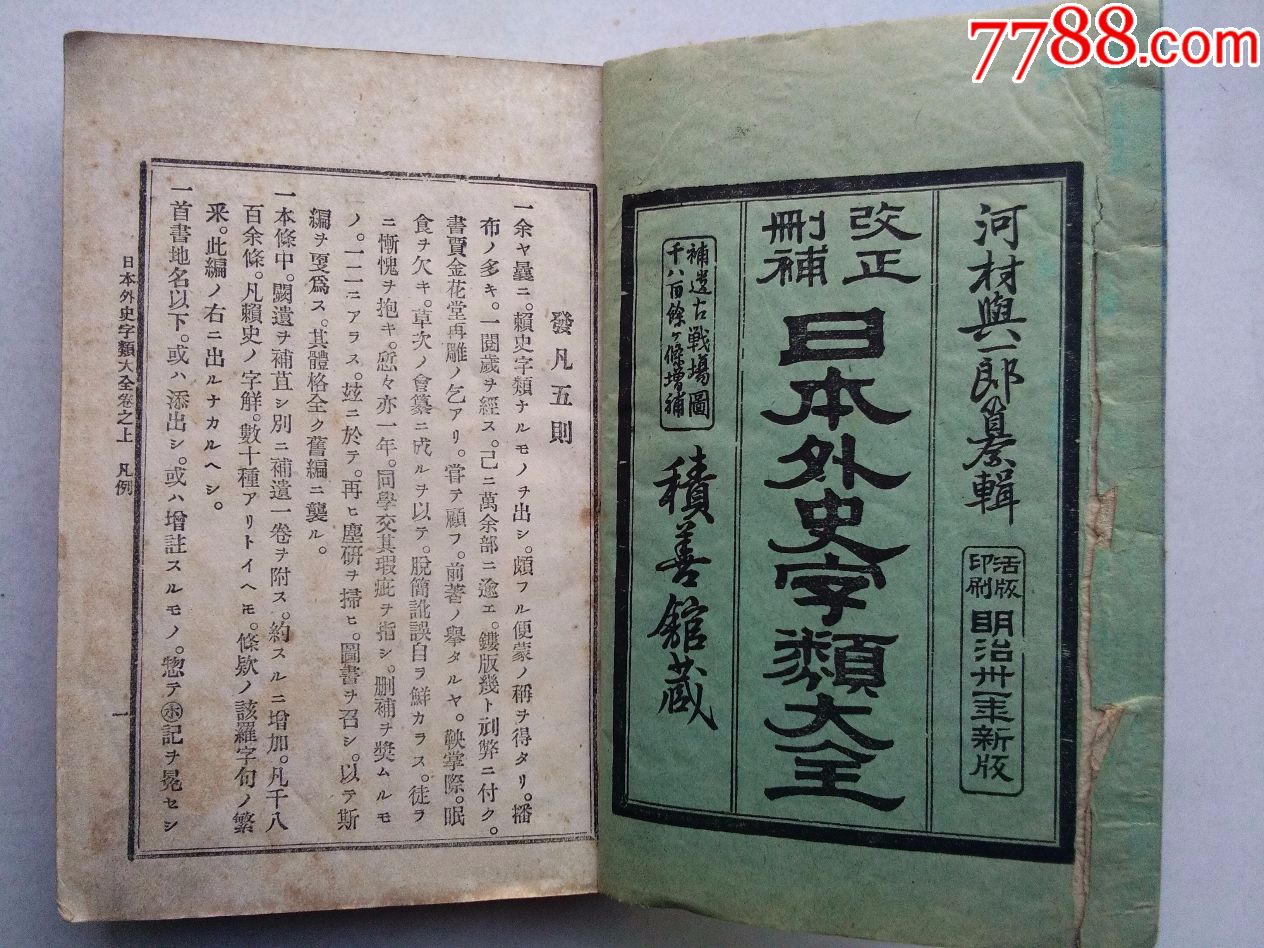 7788.com
河村與一郎纂輯
活版印刷
明治卅一年新版
改正刪補
日本外史字類大全
補遺古戰場圖
千八百餘ヶ條增補
積善舘藏
發凡五則
一余ヤ曩ニ。賴史字類ナルモノヲ出シ。頗フル便蒙ノ稱ヲ得タリ。播
布ノ多キ。一閱歲ヲ經ス。己ニ萬余部ニ逾エ。鏤版幾ト刓弊ニ付ク。
書賈金花堂再雕ノ乞アリ。嘗テ顧フ。前著ノ擧タルヤ。鞅掌際。眠
食ヲ欠キ。草次ノ會纂ニ成ルヲ以テ。脫簡訛誤自ラ鮮カラス。徒ラ
ニ慚愧ヲ抱キ。愆々亦一年。同學交其瑕疵ヲ指シ。刪補ヲ奬ムルモ
ノ。一二ニアラス。玆ニ於テ。再ヒ塵硏ヲ掃ヒ。圖書ヲ召シ。以テ斯
編ヲ更爲ス。其體格全ク舊編ニ襲ル。
一本條中。闕遺ヲ補苴シ別ニ補遺一卷ヲ附ス。約スルニ增加。凡千八
百余條。凡賴史ノ字解。數十種アリトイヘモ。條欵ノ該羅字句ノ繁
釆。此編ノ右ニ出ルナカルヘシ。
一首書地名以下。或ハ添出シ。或ハ增註スルモノ。惣テ㊭記ヲ冕セシ
日本外史字類大全卷之上 凡例 一